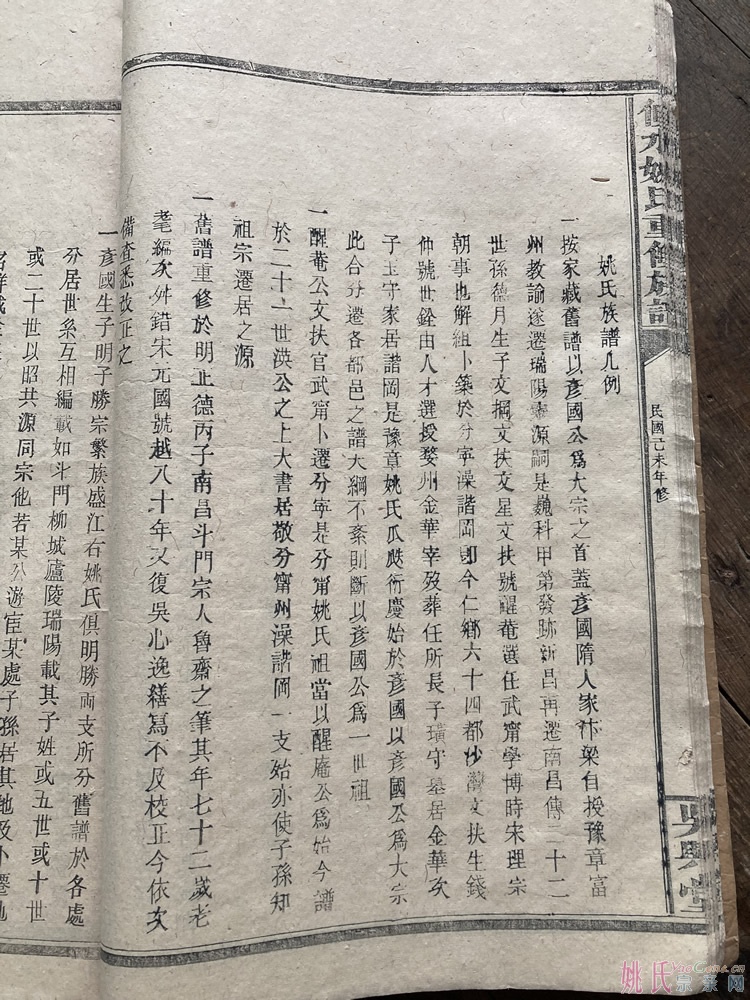 姚氏族譜凡例
一按家藏舊譜以彥國公爲大宗之首蓋彥國隋人家汴梁自授豫章富
州教諭遂遷瑞陽靈源嗣是巍科甲第發跡新昌再遷南昌傳二十二
世孫德月生子文攔文扶文星文扶號醒菴選任武甯學博時宋理宗
朝事也解組卜築於分寧澡諧岡卽今仁鄉六十四都沙灣文扶生錢
仲號世銓由人才選授婺州金華宰歿葬任所長子璜守墓居金華次
子玉守家居諧岡是豫章姚氏瓜瓞衍慶始於彥國以彥國公爲大宗
此合分遷各都邑之譜大綱不紊則斷以彥國公爲一世祖
一醒菴公文扶官武甯卜遷分寧是分甯姚氏祖當以醒庵公爲始今譜
於二十二世洪公之上大書居敬分甯州澡諧岡一支始亦使子孫知
祖宗遷居之源
一舊譜重修於明正德丙子南昌斗門宗人魯齋之筆其年七十二歲老
耄編次舛錯宋元國號越八十年又復吳心逸繕寫不及校正今依次
備查悉改正之
一彥國生子明子勝宗繁族盛江右姚氏俱明勝兩支所分舊譜於各處
分居世系互相編載如斗門柳城廬陵瑞陽載其子姓或五世或十世
或二十世以昭共源同宗他若某公游宦某處子孫居其地及卜遷他
姚氏重修族譜
民國己未年修
吳興堂
姚氏宗亲网
YaoGens.cn